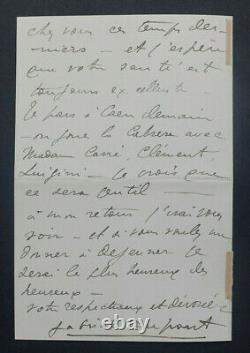 chez vous ces temps der-
-niers — et j'espère
que votre santé est
toujours excellente.
Je pars à Caen demain
— on joue la Cabrera avec
Madame Carré, Clément,
Luigini — Je crois que
ce sera gentil —
à mon retour j'irai vous
voir — et si vous voulez me
donner à déjeuner je
serai le plus heureux des
heureux —
votre respectueux et dévoué
Gabriel Dupont